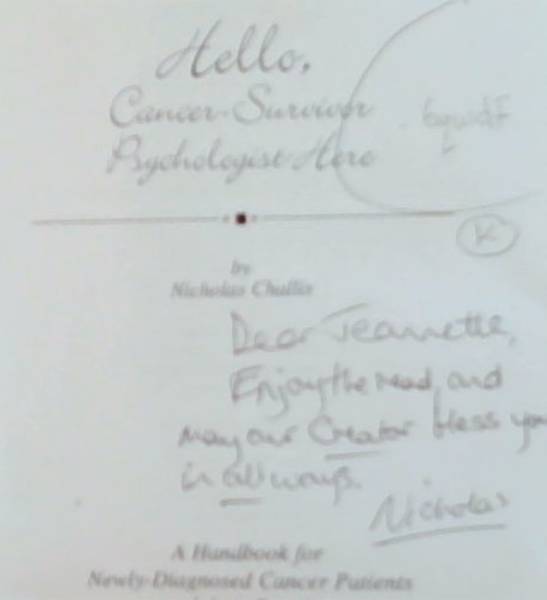 Hello,
Cancer-Survivor
Psychologist Here
K
by
Nicholas Challis
Dear Jeannette,
Enjoy the read, and
may our Creator bless you
in all ways.
Nicholas
A Handbook for
Newly-Diagnosed Cancer Patients